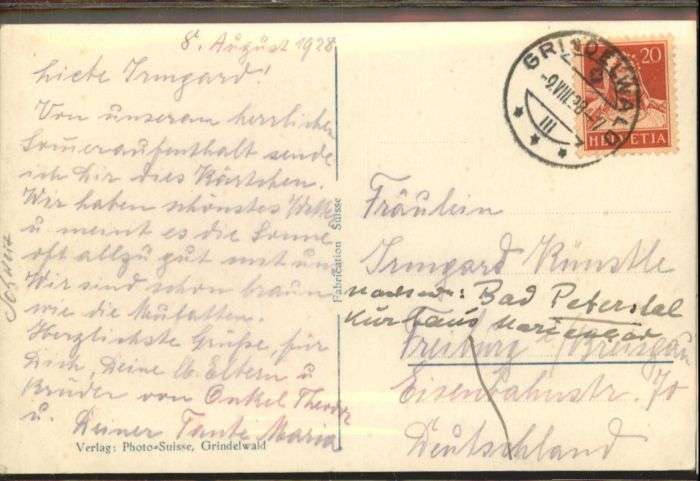 8. August 1928
Liebe Irmgard!
Von unserem herrlichen
Sommeraufenthalt sende
ich Dir dies Kärtchen.
Wir haben schönstes Wetter
u meint es die Sonne
oft allzu gut mit uns
Wir sind schon braun
wie die Mulatten.
Herzlichste Grüße, für
Dich, Deine lb. Eltern u
Brüder von Onkel Theodor
u. Deiner Tante Maria
Schweiz
Verlag: Photo-Suisse, Grindelwald
Fabrication Suisse
GRINDELWALD
III
20
HELVETIA
Fräulein
Irmgard Künstle
Bad Peterstal
Kurhaus
Freiburg i/Breisgau
Eisenbahnstr. 70
Deutschland